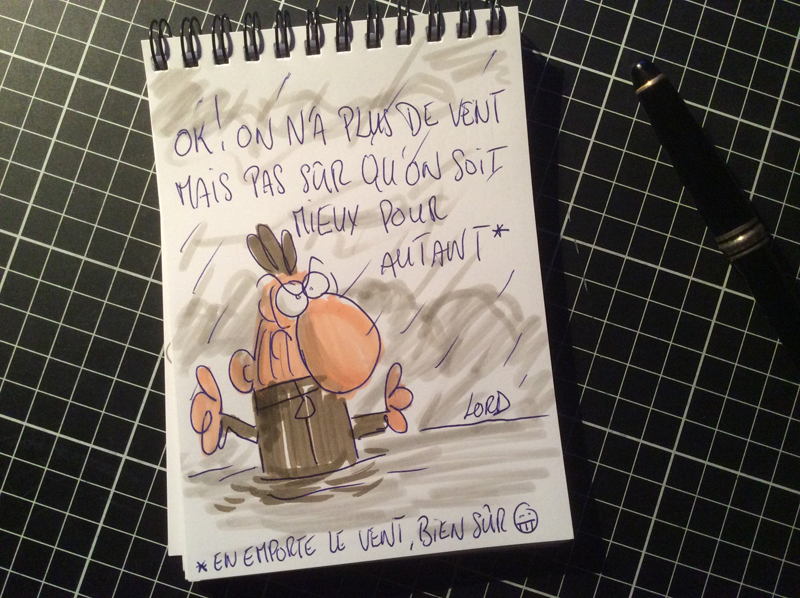 OK! ON N'A PLUS DE VENT
MAIS PAS SÛR QU'ON SOIT
MIEUX POUR
AUTANT*
LORD
*EN EMPORTE LE VENT, BIEN SÛR